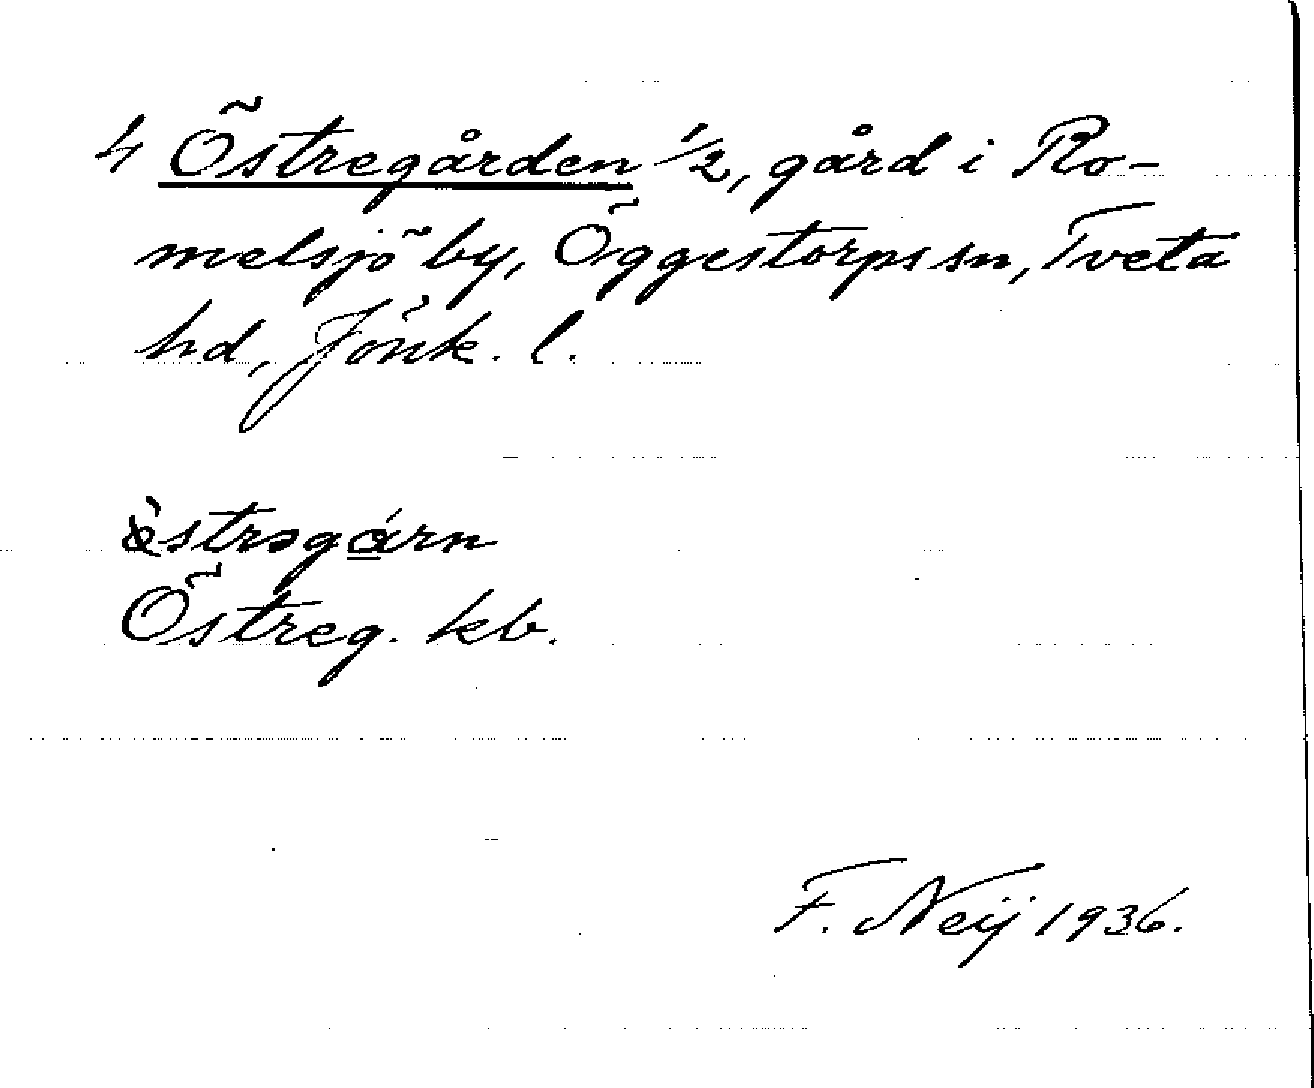 4 Östregården 1/2, gård i Ro-
melsjö by, Öggestorps sn, Tveta
hd, Jönk. l.
östrəgårn
Östreg. kb.
F. Neij 1936.